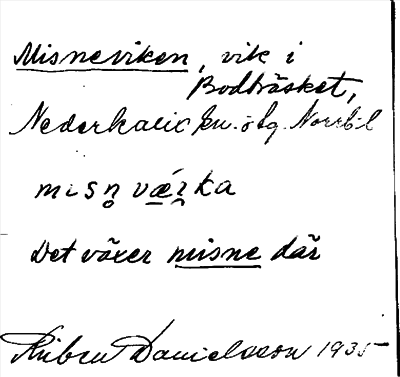 Misneviken, vik i
Bodträsket,
Nederkalix sn. o tg. Norrb. l
misn̥ vǽ̱r̯ka
Det växer misne där
Ruben Danielsson 1935